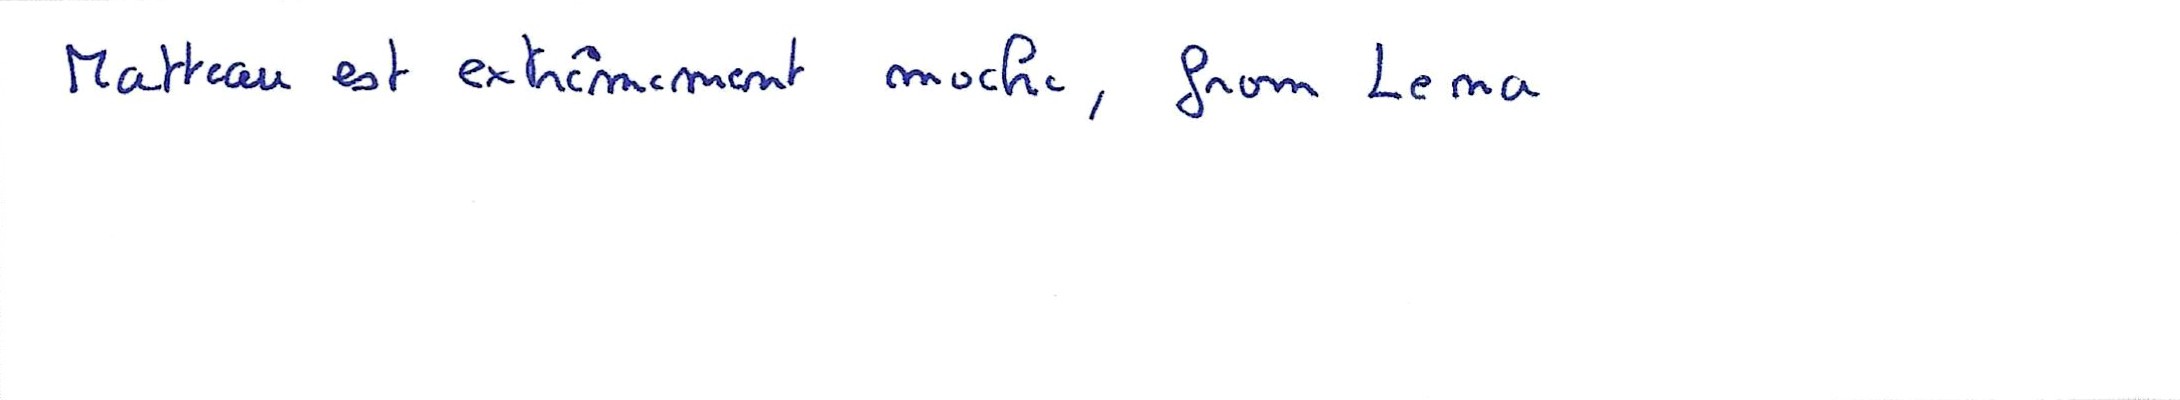 Matteau est extrêmement moche, from Lena